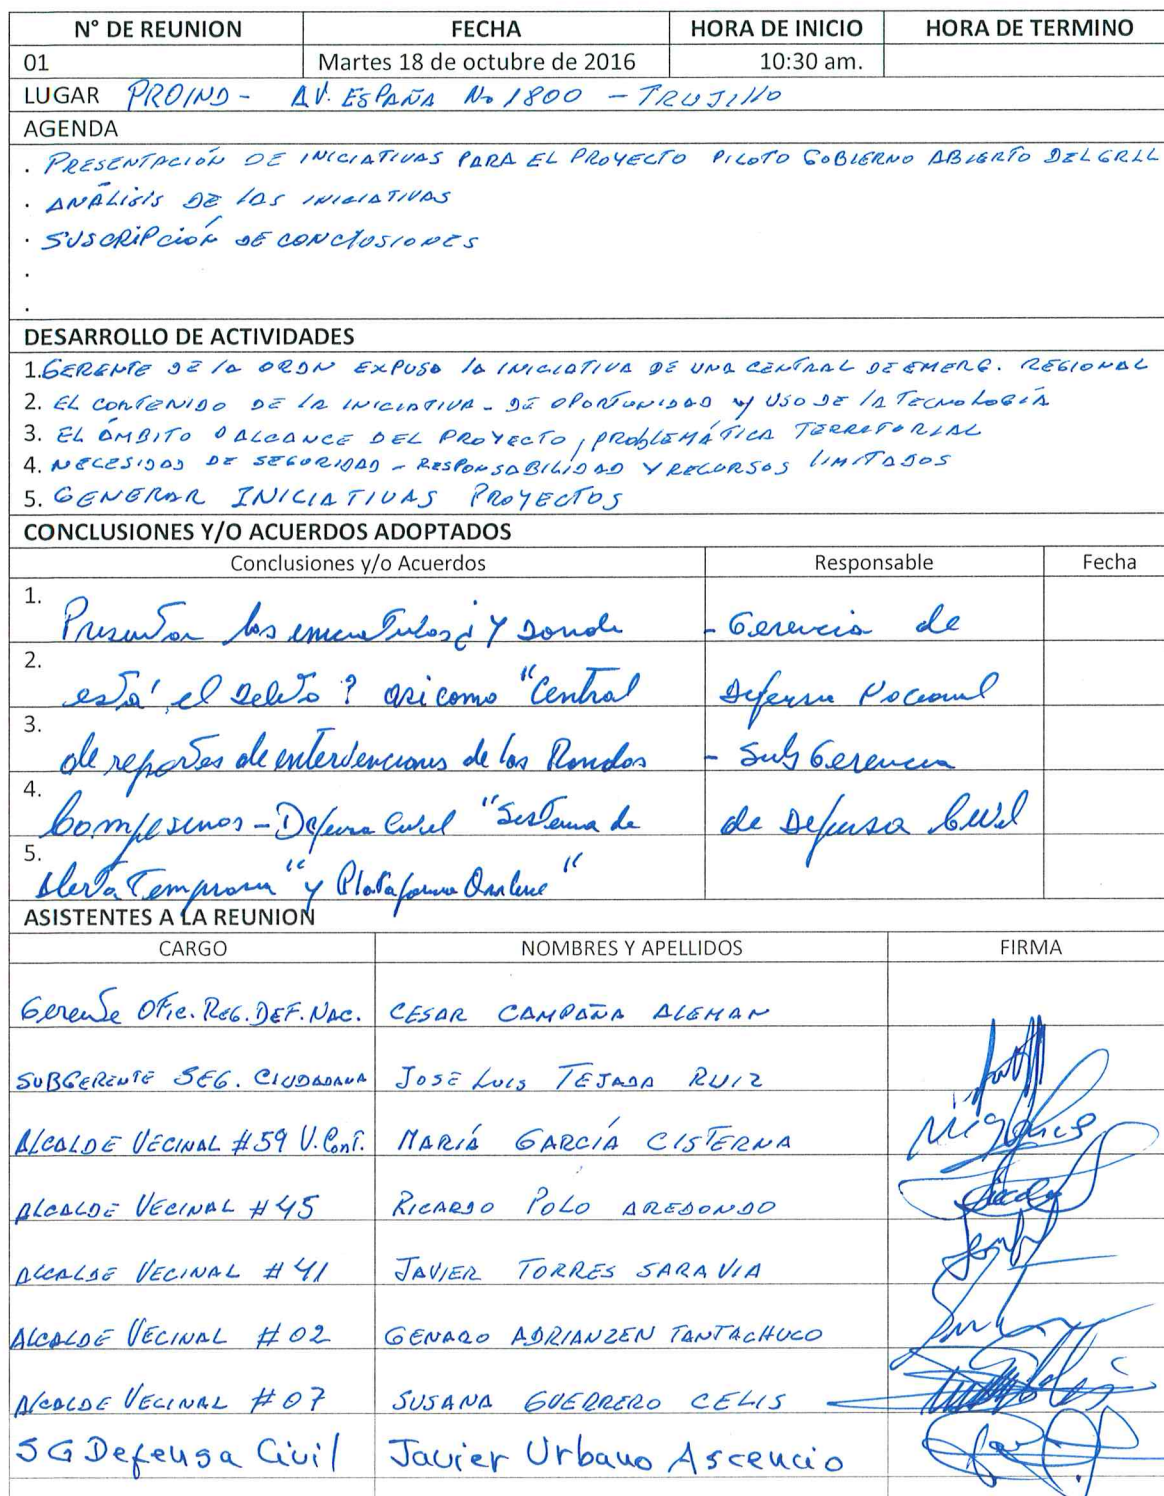 N° DE REUNION FECHA HORA DE INICIO HORA DE TERMINO
01 Martes 18 de octubre de 2016 10:30 am.
LUGAR PROIND - AV. ESPAÑA No 1800 - TRUJILLO
AGENDA
. PRESENTACIÓN DE INICIATIVAS PARA EL PROYECTO PILOTO GOBIERNO ABIERTO DEL GRLL
. ANÁLISIS DE LAS INICIATIVAS
. SUSCRIPCIÓN DE CONCLUSIONES
.
.
DESARROLLO DE ACTIVIDADES
1. GERENTE DE LA ORDN EXPUSO LA INICIATIVA DE UNA CENTRAL DE EMERG. REGIONAL
2. EL CONTENIDO DE LA INICIATIVA - DE OPORTUNIDAD y USO DE LA TECNOLOGÍA
3. EL AMBITO O ALCANCE DEL PROYECTO, PROBLEMÁTICA TERRITORIAL
4. NECESIDAD DE SEGURIDAD - RESPONSABILIDAD Y RECURSOS LIMITADOS
5. GENERAR INICIATIVAS PROYECTOS
CONCLUSIONES Y/O ACUERDOS ADOPTADOS
Conclusiones y/o Acuerdos Responsable Fecha
1. Presentar los ¿ Y donde - Gerencia de
2. está el delito ? asi como "Central Defensa Nacional
3. de reportes de intervenciones de las Rondas - Sub Gerencia
4. Campesinas - Defensa Civil "Sistema de de Defensa Civil
5. Alerta Temprana" y Plataforma Online"
ASISTENTES A LA REUNION
CARGO NOMBRES Y APELLIDOS FIRMA
Gerente OFic. REG. DEF. NAC. CESAR CAMPAÑA ALEMAN
SUBGERENTE SEG. CIUDADANA JOSE LUIS TEJADA RUIZ
ALCALDE VECINAL #59 V. Cont. MARIÁ GARCÍA CISTERNA
ALCALDE VECINAL #45 RICARDO POLO AREDONDO
ALCALDE VECINAL #41 JAVIER TORRES SARAVIA
ALCALDE VECINAL #02 GENARO ADRIANZEN TANTACHUCO
ALCALDE VECINAL #07 SUSANA GUERRERO CELIS
SG Defensa Civil Javier Urbano Ascencio